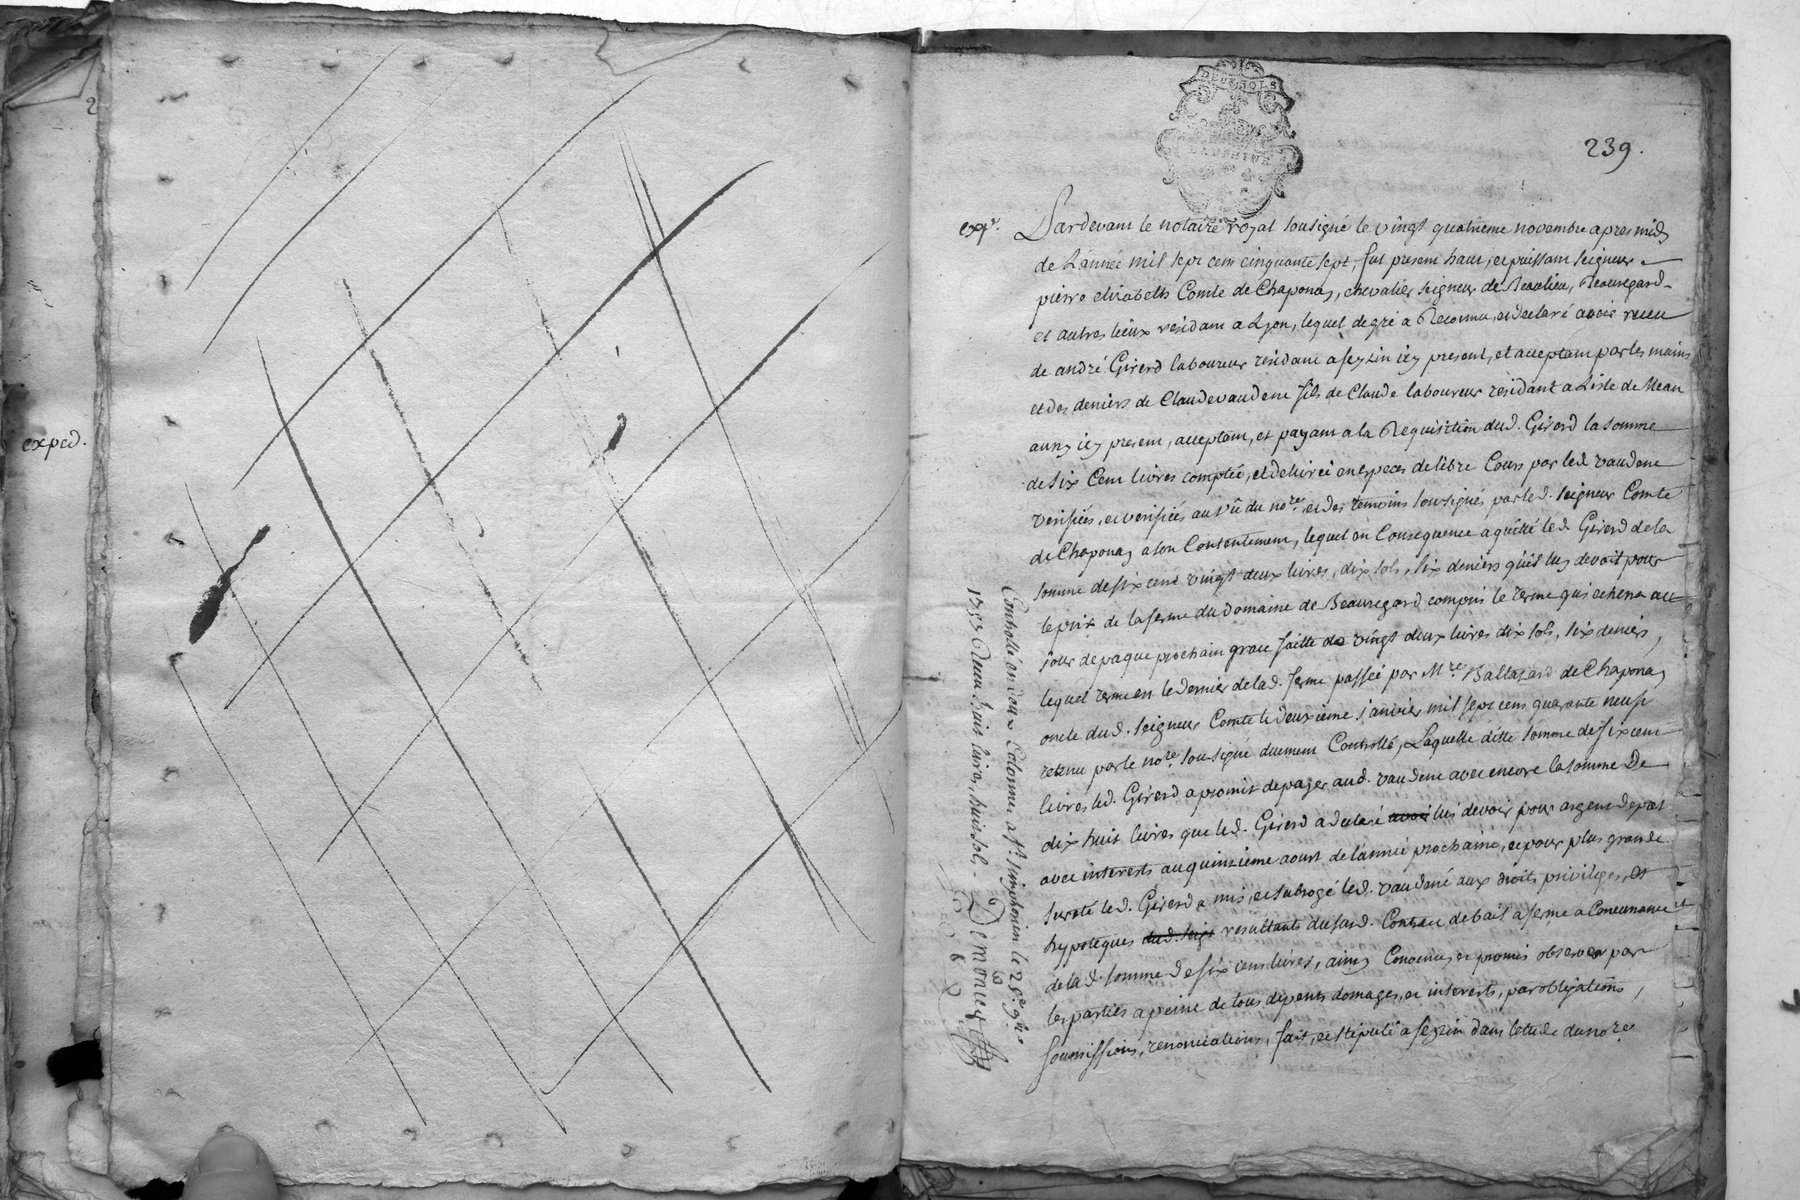 exped.
DEUX SOLS
239.
exp.e
Pardevant le notaire royal sousigné le vingt quatrieme novembre apres midy
de L'année mil sept cent cinquante sept, fut present haut, et puissant seigneur
pierre elizabeth Comte de Chaponay, chevalier seigneur de Beaulieu, Beauregard
et autres lieux residant a Lyon, lequel de gré a Reconnu, et declaré avoir receu
de andré Girerd laboureur residant a feyzin icy present, et acceptant par les mains
et des deniers de Claude vaudene fils de Claude laboureur residant a Lisle de
icy present, acceptant, et payant a la Requisition dud. Girerd la somme
de six Cent livres comptée, et delivrée en especes de libre Cours par led vaudene
verifiées, et verifiées au vû du no.re et des temoins sousignés par led. seigneur Comte
de Chaponay a son Contentement, lequel en Consequence a quitté led Girerd de la
somme de six cent vingt deux livres, dix sols, six deniers qu'il luy devoit pour
le prix de la ferme du domaine de Beauregard compris le terme qui echera au
jour de paque prochain grace faitte de vingt deux livres dix sols, six deniers,
lequel terme en le dernier de lad. ferme passée par M.re Baltazard de Chaponay
oncle dud. seigneur Comte le deuxieme janvier mil sept cent quarante neuf
retenu par le no.re sousigné duement Controllé, Laquelle ditte somme de six cent
livres led. Girerd a promit de payer aud. vaudene avec encore la somme De
dix huit livres que led. Girerd a declaré avoir lui devoir pour argent depret
avec interests au quinzieme aoust de l'année prochaine, et pour plus grande
sureté led. Girerd a mis, et subrogé led. vaudené aux droits privileges, et
hypoteques dud. seig.r resultants dususd. Contract de bail a ferme a Concurrance
de lad. somme de six cens livres, ainsy Convenu, et promis observer par
les parties a peine de tous depents domages, et interests, par obligations,
soumissions, renonciations, fait, et stipulé a feyzin dans letude du no.re
Controllé en deux Colonnes a s.t simphorien le
1757 Reçu huit livres, huit sols